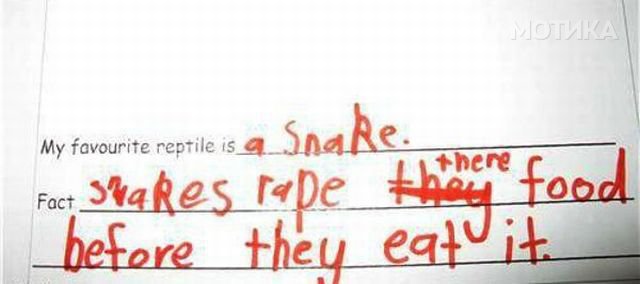 МОТИКА
My favourite reptile is a snake.
there
Fact snakes rape they food
before they eat it.